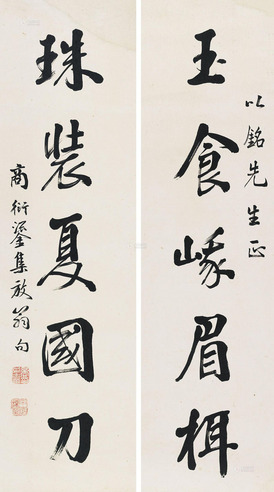 以銘先生正
玉食峨眉栮
珠裝夏國刀
商衍鎏集放翁句